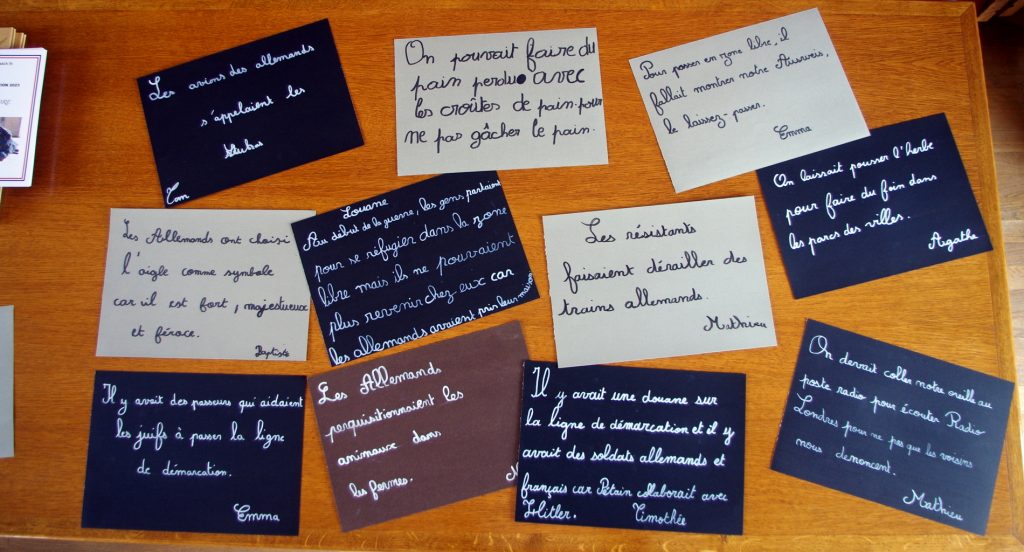 Les avions des allemands
s'appelaient les
Stukas
Tom
On pouvait faire du
pain perdu avec
les croûtes de pain pour
ne pas gâcher le pain.
Pour passer en zone libre, il
fallait montrer notre Ausweis,
le laissez-passer.
Emma
On laissait pousser l'herbe
pour faire du foin dans
les parcs des villes.
Agathe
Les Allemands ont choisi
l'aigle comme symbole
car il est fort, majestueux
et féroce.
Baptiste
Louane
Au début de la guerre, les gens partaient
pour se réfugier dans la zone
libre mais ils ne pouvaient
plus revenir chez eux car
les allemands avaient pris leurs maisons
Les résistants
faisaient dérailler des
trains allemands.
Mathieu
Il y avait des passeurs qui aidaient
les juifs à passer la ligne
de démarcation.
Emma
Les Allemands
perquisitionnaient les
animaux dans
les fermes.
Il y avait une douane sur
la ligne de démarcation et il y
avait des soldats allemands et
français car Pétain collaborait avec
Hitler.
Timothée
On devait coller notre oreille au
poste radio pour écouter Radio
Londres pour ne pas que les voisins
nous dénoncent.
Mathieu